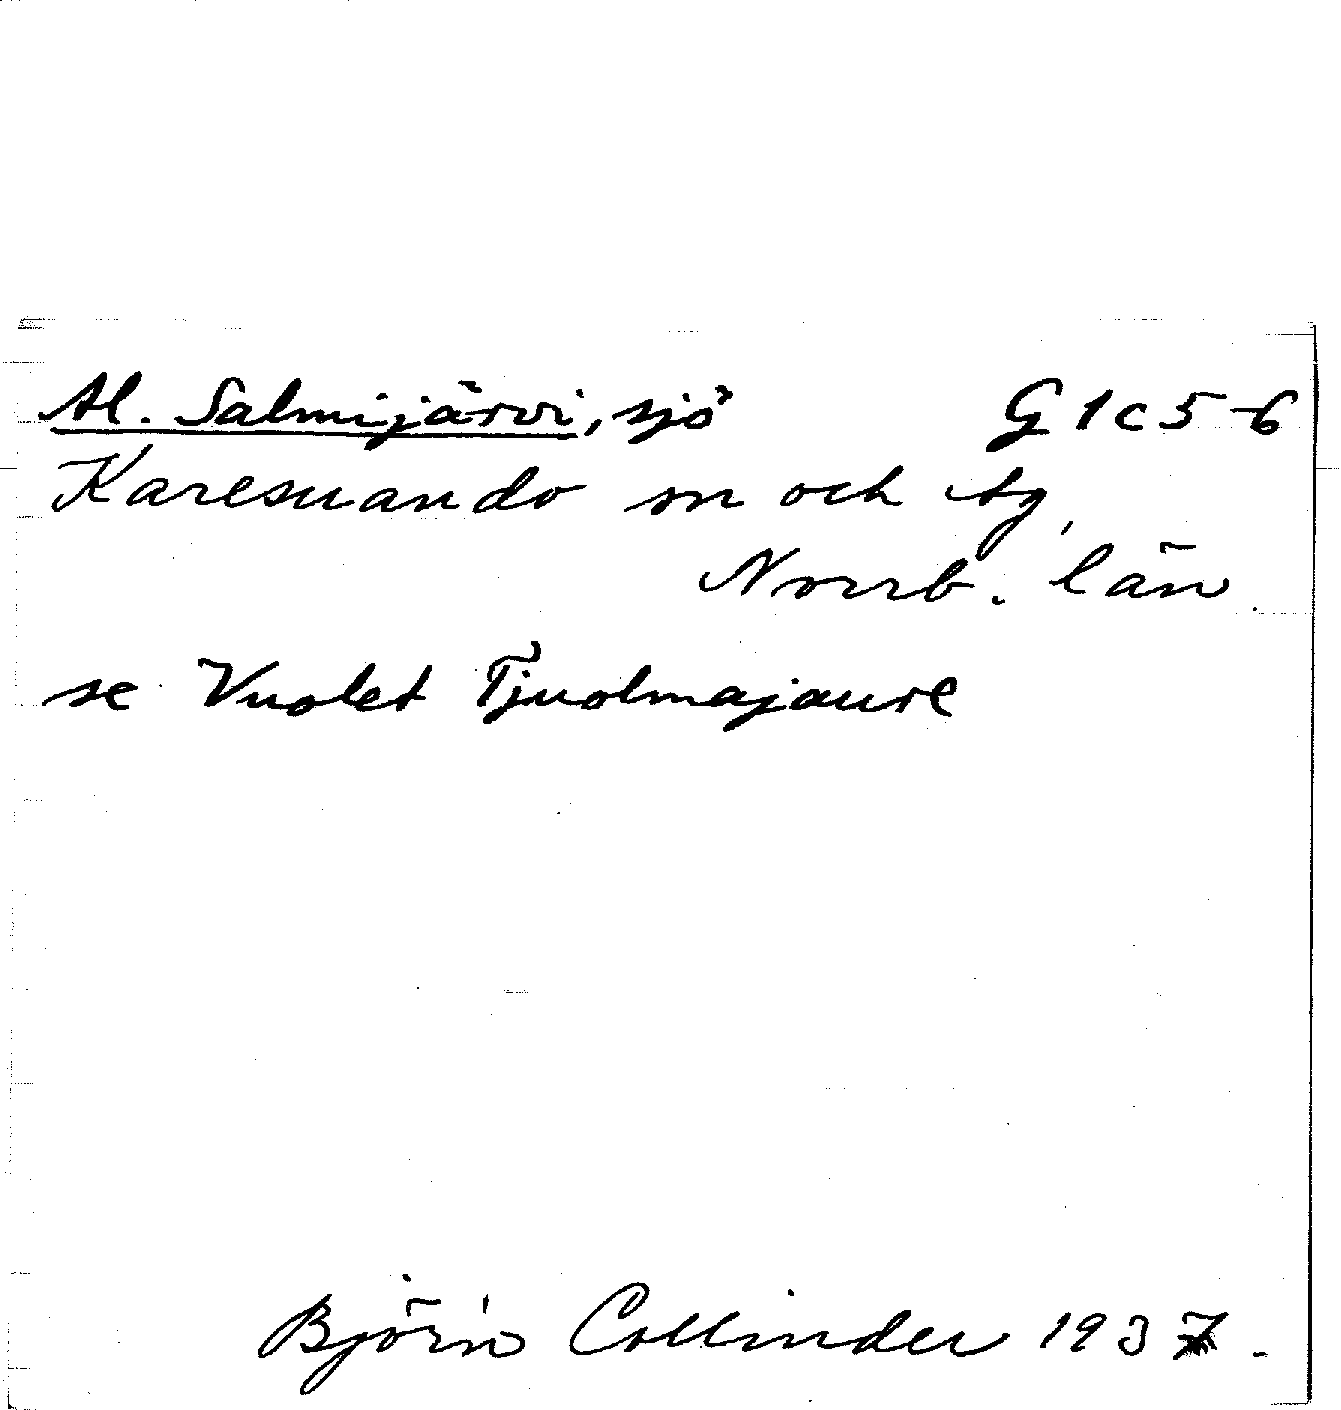 Al. Salmijärvi, sjö G 1 c 5-6
Karesuando sn och tg,
Norrb. län
se Vuolet Tjuolmajaure
Björn Collinder 1937.